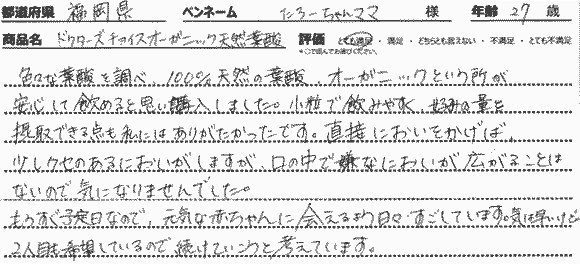 都道府県 福岡県 ペンネーム たろーちゃんママ 様 年齢 27 歳
商品名 ドクターズチョイスオーガニック天然葉酸 評価 とても満足 ・ 満足 ・ どちらとも言えない ・ 不満足 ・ とても不満足
*○で囲んでお選びください。
色々な葉酸を調べ、100%天然の葉酸、オーガニックという所が
安心して飲めると思い購入しました。小粒で飲みやすく、好みの量を
摂取できる点も私にはありがたかったです。直接においをかげば、
少しクセのあるにおいがしますが、口の中で嫌なにおいが広がることは
ないので気になりませんでした。
もうすぐ予定日なので、元気な赤ちゃんに会えるよう日々すごしています。気は早いけど
2人目も希望しているので、続けていこうと考えています。